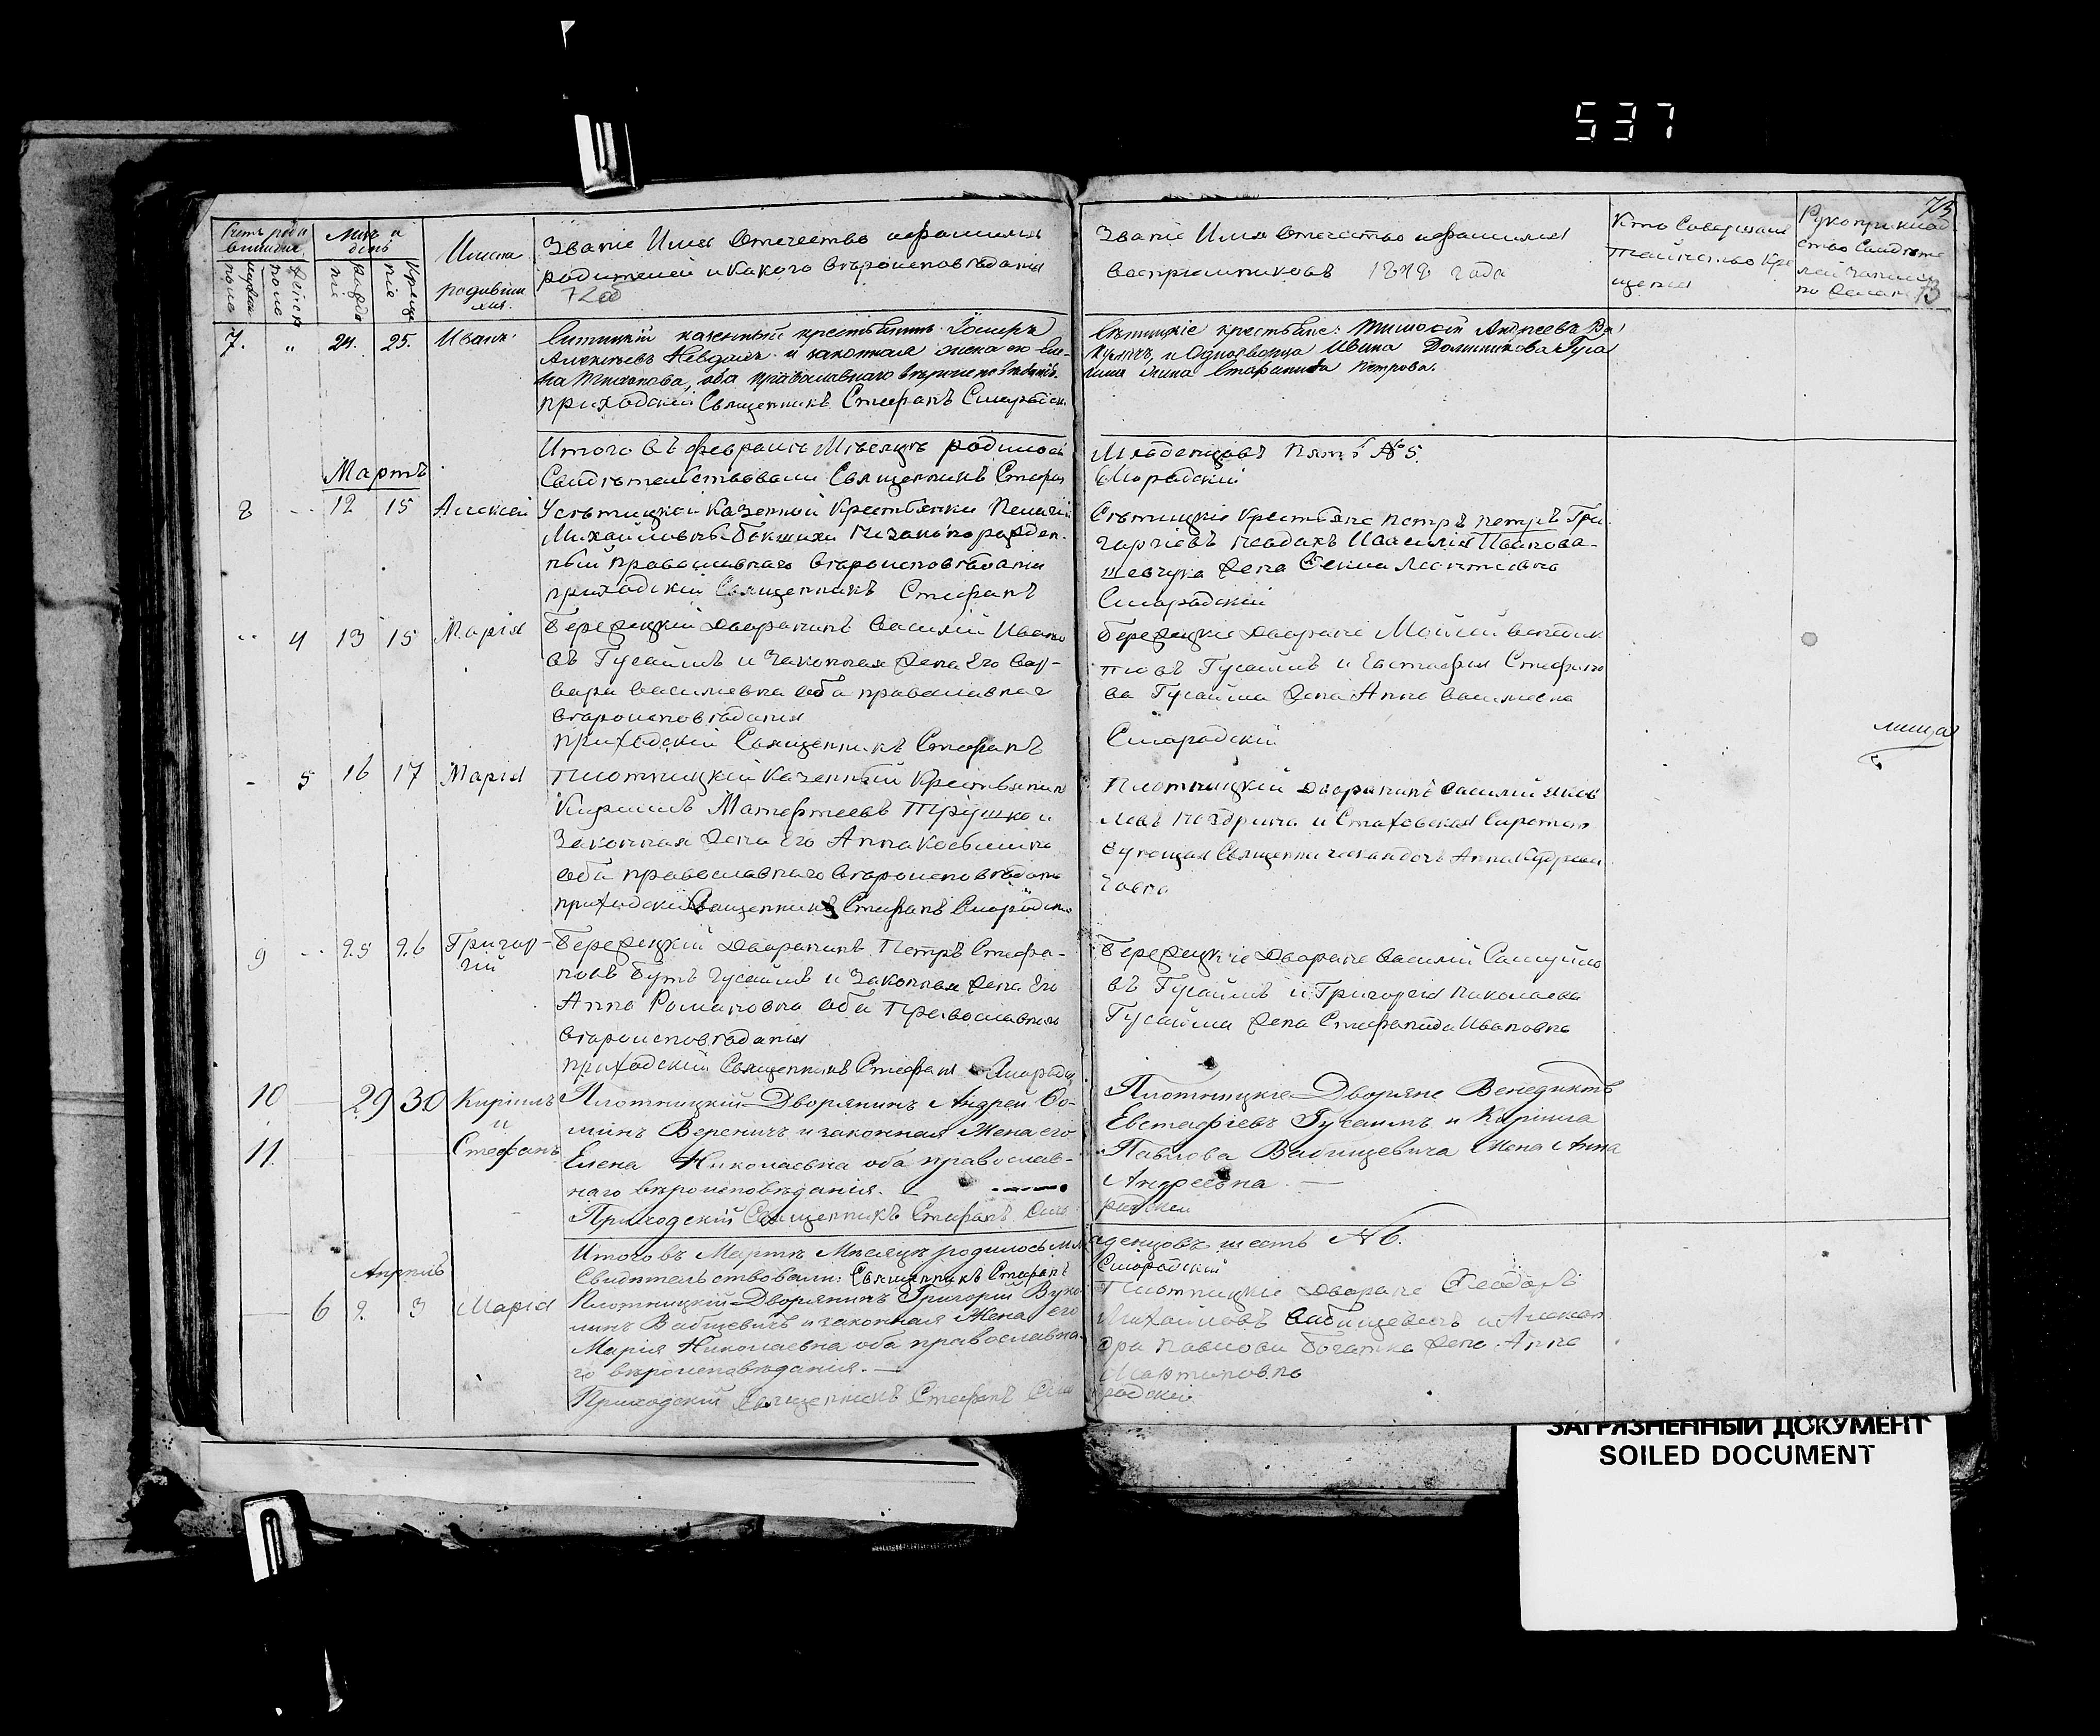 537
73
Счетъ роди
вшихся
Мць и
день
мужеска
пола
женска
пола
рожде
нія
креще
нія
Имена
родивши
хся.
Званіе Имя Отечество и фамилія
родителей и какого вѣроисповѣданія
72об
Званіе Имя Отечество и фамилія
воспріемниковъ 1848 года
Кто Совершалъ
таинство Кре
щенія
Рукоприклад
ство Свидѣте
лей записи
по желан
73
7. „ 24. 25. Иванъ.
казенный крестьянинъ Іосифъ
и законная жена его Еле-
на оба православнаго вѣроисповѣданія.
приходскій Священникъ Стефанъ Смародск
крестьяне: Тимофей Андреевъ
и Однодворца Ивана
жена Стефанида Петрова.
Итого въ февралѣ Мѣсяцѣ родилось
Свидѣтельствовали Священникъ Стефан
Младенцовъ пять № 5.
Смародскій
Мартъ
8 12 15 Алексей
Казенной Крестьянки Пелагіи
Михайловны незаконорожден-
ный православнаго вѣроисповѣданія
приходскій Священникъ Стефанъ
Крестьяне петръ петръ Гри
горіевъ Невдахъ Иваси́лія Иванова-
шевчука жена Леонтіевна
Смародскій
4 13 15 Марія
Бережецкій Дворянинъ Василій Ивано
въ Гусаимъ и законная жена Его Вар-
вара Василіевна оба православнаг
вѣроисповѣданія
приходскій Священникъ Стефанъ
Бережецкіе Дворяне Мойсей Венедик
товъ Гусаимъ и Евстафія Стефано
ва Гусаима жена Анна Василіевна
Смародскій
5 16 17 Марія
Плотницкій Казенный Крестьянинъ
Кириллъ Матефеевъ Трушко и
Законная жена Его Анна
оба православнаго вѣроисповѣдані
приходскій Священникъ Стефанъ Смародски
Плотницкій Дворянинъ Василій Яков
левъ и Стаховская Сирот
Анна
9 25 26 Григор-
ій
Бережецкій Дворянинъ Петръ Стефа-
новъ Бутъ Гусаимъ и Законная жена Его
Анна Романовна оба Православнаго
вѣроисповѣданія
приходскій Священникъ Стефанъ Смародск
Бережецкіе Дворяне Василій Самуйло
въ Гусаимъ и Григорія Николаева
Гусаима жена Стефанида Ивановна
10 29 30 Кириллъ
и
11 Стефанъ
Плотницкій Дворянинъ Андрей Ѳо-
минъ Вереничъ и законная жена его
Елена Николаевна оба православ-
наго вѣроисповѣданія.
Приходскій Священникъ Стефанъ Сма
Плотницкіе Дворяне Венедиктъ
Евстафіевъ Гусаимъ и Кирилла
Павлова Вабищевича жена Анна
Андреевна
родскій
Итого въ Мартѣ Мѣсяцѣ родилось мла
денцовъ шесть № 6.
Свидѣтельствовали: Священникъ Стефанъ
Смародскій
Апрель
6 2 3 Марія
Плотницкій Дворянинъ Григорій Вуко
ловъ Вабищевичъ и законная жена его
Марія Николаевна оба православна
го вѣроисповѣданія.
Приходскій Священникъ Стефанъ Сма
Плотницкіе Дворяне Феодоръ
Михайловъ Вабищевичъ и Алексан
дра Павлова Богатка жена Анна
Мартиновна
родскій
ЗАГРЯЗНЕННЫЙ ДОКУМЕНТ
SOILED DOCUMENT